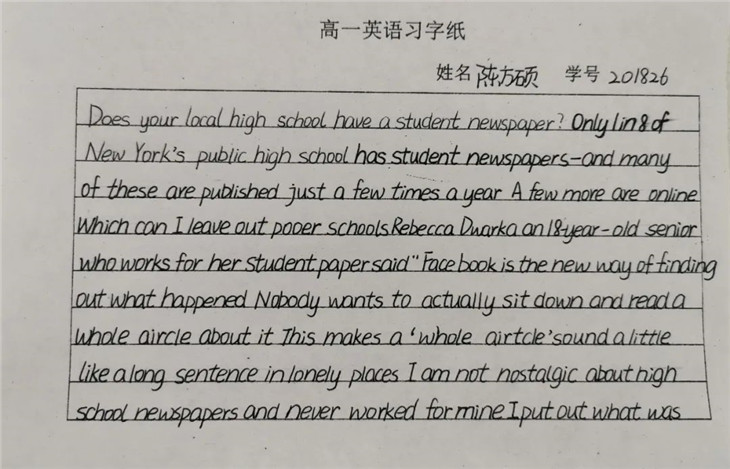 高一英语习字纸
姓名 陈方硕 学号 201826
Does your local high school have a student newspaper? Only 1 in 8 of
New York's public high school has student newspapers-and many
of these are published just a few times a year A few more are online
Which can I leave out pooer schools Rebecca Dwarka an 18-year-old senior
who works for her student paper said "Facebook is the new way of finding
out what happened Nobody wants to actually sit down and read a
whole aircle about it This makes a 'whole airtcle' sound a little
like a long sentence in lonely places I am not nostalgic about high
school newspapers and never worked for mine I put out what was